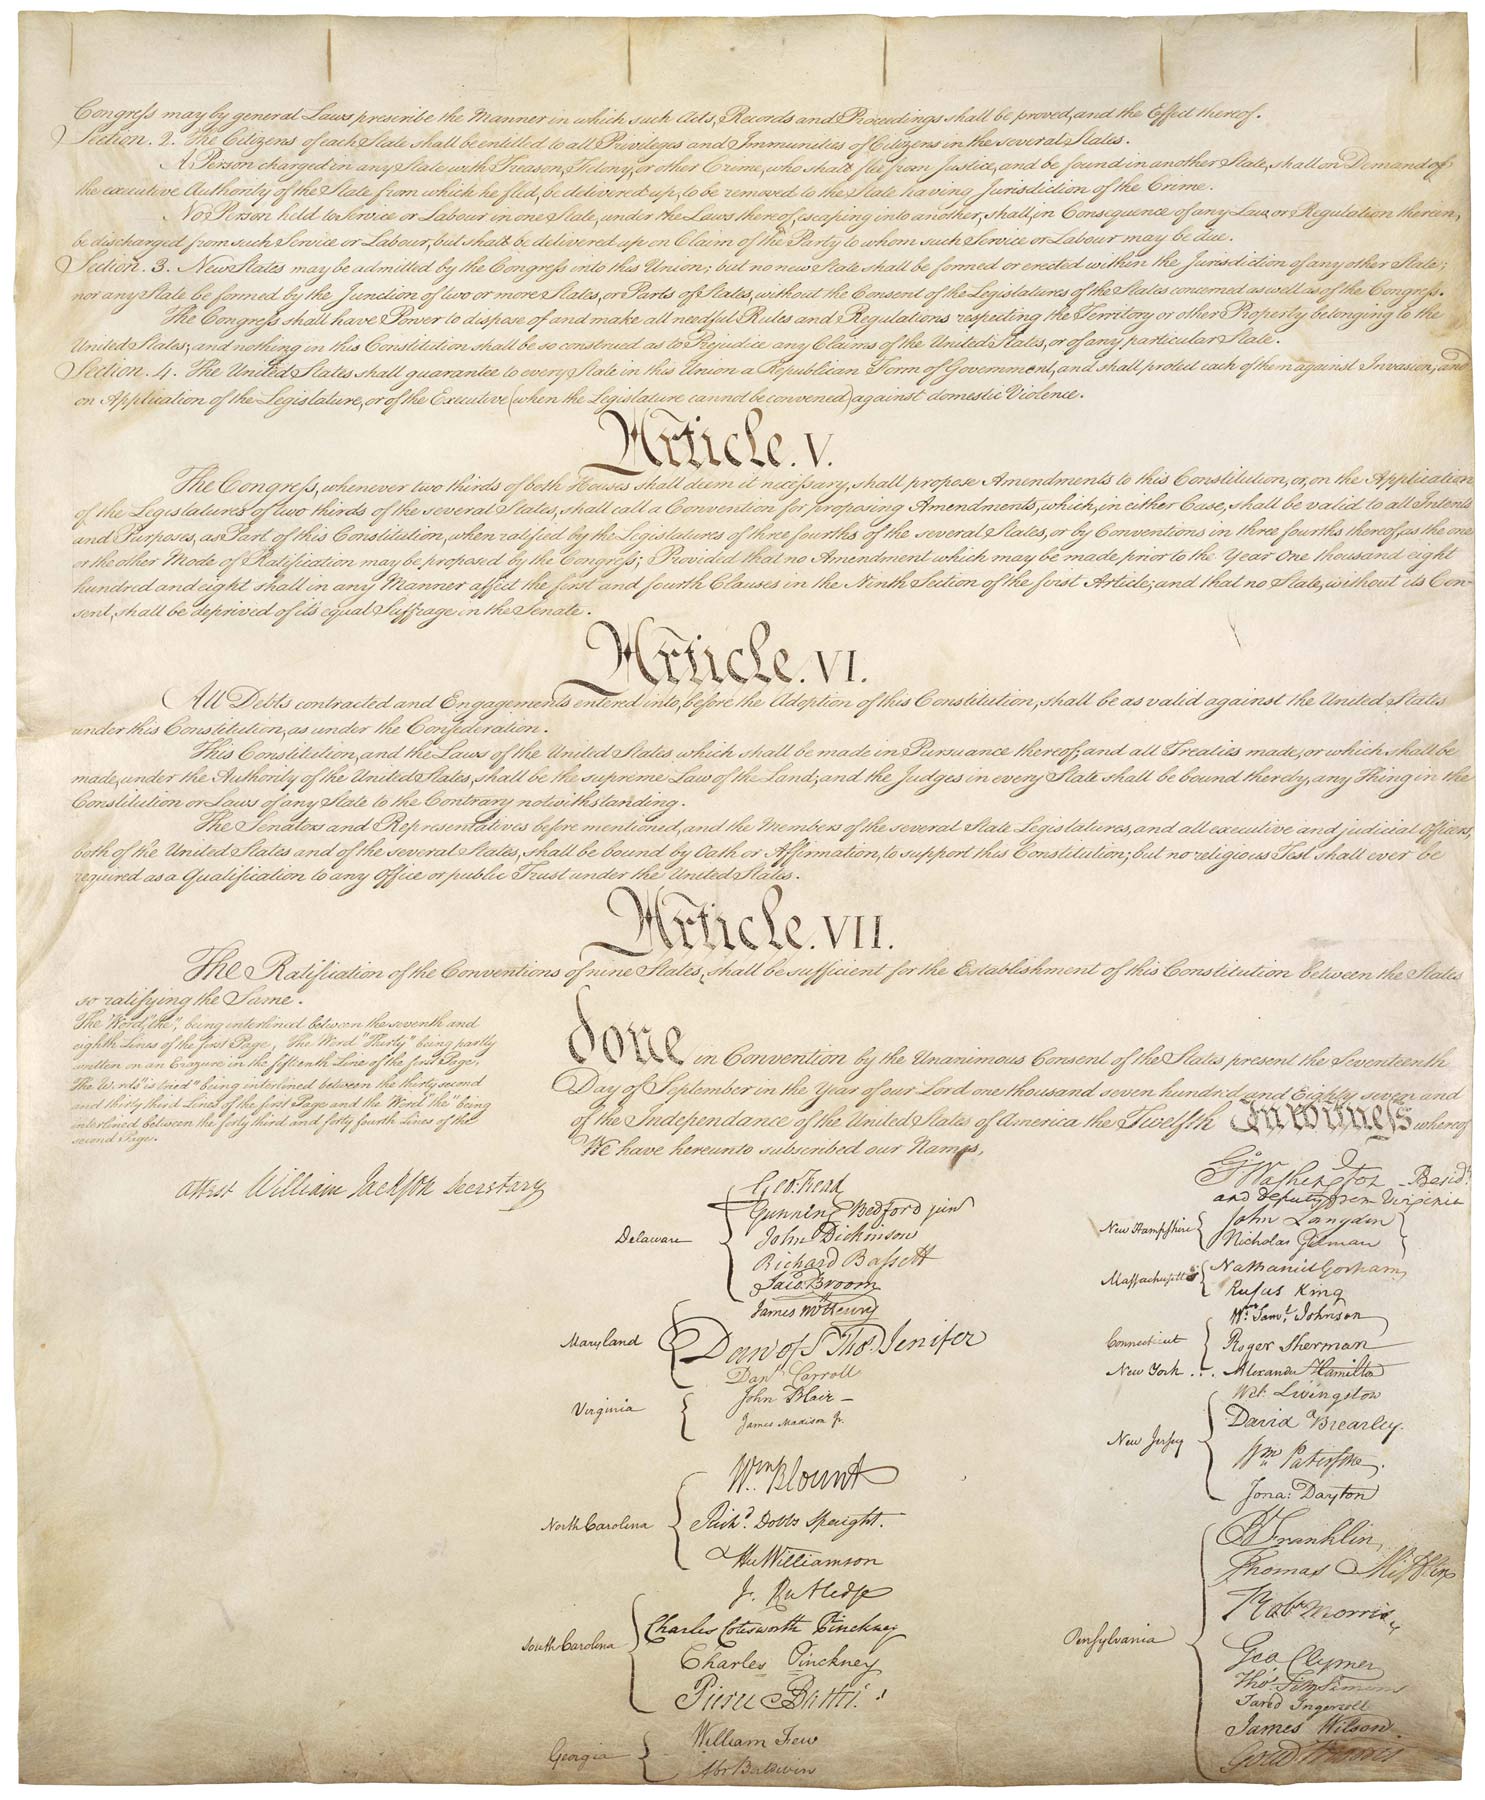 Congress may by general Laws prescribe the Manner in which such Acts, Records and Proceedings shall be proved, and the Effect thereof.
Section. 2. The Citizens of each State shall be entitled to all Privileges and Immunities of Citizens in the several States.
A Person charged in any State with Treason, Felony, or other Crime, who shall flee from Justice, and be found in another State, shall on Demand of
the executive Authority of the State from which he fled, be delivered up, to be removed to the State having Jurisdiction of the Crime.
No Person held to Service or Labour in one State, under the Laws thereof, escaping into another, shall, in Consequence of any Law or Regulation therein,
be discharged from such Service or Labour, but shall be delivered up on Claim of the Party to whom such Service or Labour may be due.
Section. 3. New States may be admitted by the Congress into this Union; but no new State shall be formed or erected within the Jurisdiction of any other State;
nor any State be formed by the Junction of two or more States, or Parts of States, without the Consent of the Legislatures of the States concerned as well as of the Congress.
The Congress shall have Power to dispose of and make all needful Rules and Regulations respecting the Territory or other Property belonging to the
United States; and nothing in this Constitution shall be so construed as to Prejudice any Claims of the United States, or of any particular State.
Section. 4. The United States shall guarantee to every State in this Union a Republican Form of Government, and shall protect each of them against Invasion; and
on Application of the Legislature, or of the Executive (when the Legislature cannot be convened) against domestic Violence.
Article. V.
The Congress, whenever two thirds of both Houses shall deem it necessary, shall propose Amendments to this Constitution, or, on the Application
of the Legislatures of two thirds of the several States, shall call a Convention for proposing Amendments, which, in either Case, shall be valid to all Intents
and Purposes, as Part of this Constitution, when ratified by the Legislatures of three fourths of the several States, or by Conventions in three fourths thereof, as the one
or the other Mode of Ratification may be proposed by the Congress; Provided that no Amendment which may be made prior to the Year One thousand eight
hundred and eight shall in any Manner affect the first and fourth Clauses in the Ninth Section of the first Article; and that no State, without its Con-
sent, shall be deprived of it's equal Suffrage in the Senate.
Article. VI.
All Debts contracted and Engagements entered into, before the Adoption of this Constitution, shall be as valid against the United States
under this Constitution, as under the Confederation.
This Constitution, and the Laws of the United States which shall be made in Pursuance thereof; and all Treaties made, or which shall be
made, under the Authority of the United States, shall be the supreme Law of the Land; and the Judges in every State shall be bound thereby, any Thing in the
Constitution or Laws of any State to the Contrary notwithstanding.
The Senators and Representatives before mentioned, and the Members of the several State Legislatures, and all executive and judicial Officers,
both of the United States and of the several States, shall be bound by Oath or Affirmation, to support this Constitution; but no religious Test shall ever be
required as a Qualification to any Office or public Trust under the United States.
Article. VII.
The Ratification of the Conventions of nine States, shall be sufficient for the Establishment of this Constitution between the States
so ratifying the Same.
The Word, "the," being interlined between the seventh and
eighth Lines of the first Page, The Word "Thirty" being partly
written on an Erazure in the fifteenth Line of the first Page,
The Words "is tried" being interlined between the thirty second
and thirty third Lines of the first Page and the Word "the" being
interlined between the forty third and forty fourth Lines of the
second Page.
Attest William Jackson Secretary
done in Convention by the Unanimous Consent of the States present the Seventeenth
Day of September in the Year of our Lord one thousand seven hundred and Eighty seven and
of the Independance of the United States of America the Twelfth In Witness whereof
We have hereunto subscribed our Names,
Delaware
Geo: Read
Gunning Bedford jun
John Dickinson
Richard Bassett
Jaco: Broom
Maryland
James McHenry
Dan of St Thos. Jenifer
Danl Carroll
Virginia
John Blair—
James Madison Jr.
North Carolina
Wm. Blount
Richd. Dobbs Spaight.
Hu Williamson
South Carolina
J. Rutledge
Charles Cotesworth Pinckney
Charles Pinckney
Pierce Butler.
Georgia
William Few
Abr Baldwin
Go. Washington—Presidt.
and deputy from Virginia
New Hampshire
John Langdon
Nicholas Gilman
Massachusetts
Nathaniel Gorham
Rufus King
Connecticut
Wm. Saml. Johnson
Roger Sherman
New York . . .
Alexander Hamilton
New Jersey
Wil: Livingston
David Brearley.
Wm Paterson.
Jona: Dayton
Pensylvania
B Franklin
Thomas Mifflin
Robt Morris
Geo. Clymer
Thos. FitzSimons
Jared Ingersoll
James Wilson
Gouv Morris